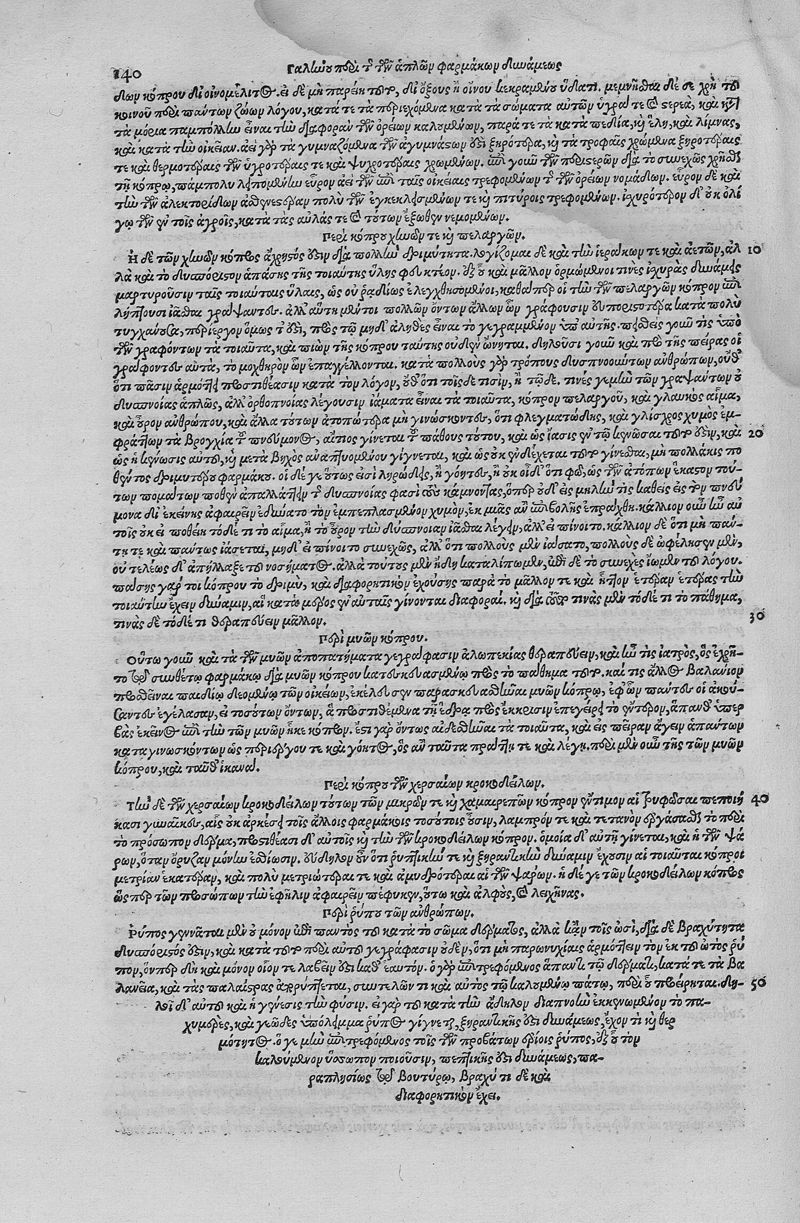 140 Γαληνοῦ περὶ τῆς τῶν ἁπλῶν φαρμάκων δυνάμεως
δων κόπρου δι' οἰνομέλιτος. εἰ δὲ μὴ παρείη τοῦτο, δι' ὄξους ἢ οἴνου κεκραμένου ὕδατι. μεμνῆσθαι δέ σε χρὴ τοῦ
κοινοῦ περὶ πάντων ζώων λόγου, κατά τε τὰ περιεχόμενα κατὰ τὰ σώματα αὐτῶν ὑγρά τε καὶ στερεὰ, καὶ
τὰ μόρια παμπόλλην εἶναι τὴν διαφορὰν τῶν ὀρείων καλουμένων, παρά τε τὰ κατὰ πεδία, καὶ ἕλη, καὶ λίμνας,
καὶ κατὰ τὴν οἰκείαν. ἀεὶ γὰρ τὰ γυμναζόμενα τῶν ἀγυμνάστων ἐστὶ ξηρότερα, καὶ τὰ τροφαῖς χρώμενα ξηροτέραις
τε καὶ θερμοτέραις τῶν ὑγροτέραις τε καὶ ψυχροτέραις χρωμένων. ἐπὶ γοῦν τῶν περιστερῶν διὰ τὸ συνεχῶς χρῆσθαι
τῇ κόπρῳ, πάμπολυ λειπομένην εὗρον ἀεὶ τῶν ἐπὶ ταῖς οἰκίαις τρεφομένων τὴν τῶν ὀρείων νομάδων. εὗρον δὲ καὶ
τὴν τῶν ἀλεκτορίδων ἀσθενεστέραν πολὺ τῶν ἐγκεκλεισμένων τε καὶ πιτύροις τρεφομένων. ἰσχυρότερον δ' οὐκ ὀλί
γῳ τῶν ἐν τοῖς ἀγροῖς, κατὰ τὰς αὐλάς τε καὶ τούτων ἔξωθεν νεμομένων.
Περὶ κόπρου χηνῶν τε καὶ πελαργῶν.
Ἡ δὲ τῶν χηνῶν κόπρος ἄχρηστός ἐστιν διὰ πολλὴν δριμύτητα. λογίζομαι δὲ καὶ τὴν ἱεράκων τε καὶ ἀετῶν, ἀλ 10
λὰ καὶ τὸ δυσπόριστον ἁπάσης τῆς τοιαύτης ὕλης φευκτέον. ἐξ οὗ καὶ μᾶλλον ὁρμώμενοί τινες ἰσχυρὰς δυνάμεις
μαρτυροῦσιν ταῖς τοιαύταις ὕλαις, ὡς οὐ ῥᾳδίως ἐλεγχθησόμενοι, καθάπερ οἱ τὴν τῶν πελαργῶν κόπρον ἐπι
ληπτοὺς ἰᾶσθαι γράψαντες. ἀλλ' αὕτη μέντοι πολλῶν ὄντων ἄλλων ὧν γράφουσιν εὐποριστοτέρα κατὰ πολὺ
τυγχάνουσα, περίεργον ὅμως τι ἐστι, πρὸς τῷ μηδ' ἀληθὲς εἶναι τὸ γεγραμμένον ὑπὲρ αὐτῆς. πεισθεὶς γοῦν τις ὑπὸ
τῶν γραφόντων τὰ τοιαῦτα, καὶ πιὼν τῆς κόπρου ταύτης οὐδὲν ὤνηται. δηλοῦσι γοῦν καὶ πρὸ τῆς πείρας οἱ
γράφοντες αὐτὰ, τὸ μοχθηρὸν ὧν ἐπαγγέλλονται. κατὰ πολλοὺς γὰρ τρόπους δυσπνοούντων ἀνθρώπων, οὔθ'
ὅτι πᾶσιν ἁρμόττει προστιθέασιν κατὰ τὸν λόγον, οὔθ' ὅτι τοῖσδε τισὶν, ἢ τῷδε. τινὲς γε μὴν τῶν γραψάντων
δυσπνοίας ἁπλῶς, ἀλλ' ὀρθοπνοίας λέγουσιν ἰάματα εἶναι τὰ τοιαῦτα, κόπρον πελαργοῦ, καὶ γλαυκὸς αἷμα,
καὶ οὖρον ἀνθρώπου, καὶ ἄλλα τούτων ἀτοπώτερα μὴ γινώσκοντες, ὅτι φλεγματώδης, καὶ γλίσχρος χυμὸς ἐμ-
φράττων τὰ βρογχία τοῦ πνεύμονος, αἴτιος γίνεται τοῦ πάθους τούτου, καὶ ὡς ἴασις ἐν τῷ κενῶσαι τοῦτό ἐστιν, καὶ 20
ὡς ἡ κένωσις αὐτοῦ, καὶ μετὰ βηχὸς ἀναπτυομένου γίγνεται, καὶ ὡς οὐκ ἐνδέχεται τοῦτο γίνεσθαι, μὴ πολλάκις πο
θέντος δριμυτέρου φαρμάκου. οἱ δέ γε οὕτως εἰσὶ ληρώδεις, ἢ γόητες, ἢ οὐκ οἶδ' ὅτι φῶ, ὡς τῶν ἀτόπων ἕκαστον τού-
των πομάτων ποθὲν ἀπαλλάττειν τῆς δυσπνοίας φασὶ τοὺς κάμνοντας, ὅπερ οὐδ' εἰς μηλωτίς καθεὶς εἰς τὸν πνεύ
μονα δι' ἐκείνης ἀφαιρεῖν ἐδύνατο τὸν ἐμπεπλασμένον χυμὸν, ἐκ μιᾶς ἂν ἐμβολῆς ἐπράχθη. κάλλιον οὖν ἦν αὐ
τοῖς οὐκ εἰ ποθείη τόδε τι τὸ αἷμα, ἢ τὸ οὖρον τὴν δύσπνοιαν ἰᾶσθαι λέγειν, ἀλλ' εἰ πίνοιτο. κάλλιον δὲ ὅτι μὴ πάν-
τῃ τε καὶ πάντως ἰάσεται, μηδ' εἰ πίνοιτο συνεχῶς, ἀλλ' ὅτι πολλοὺς μὲν ἰάσατο, πολλοὺς δὲ ὠφέλησεν μὲν,
οὐ τελέως δ' ἀπήλλαξε τοῦ νοσήματος. ἀλλὰ τούτους μὲν ἤδη καταλίπωμεν, ἐπὶ δὲ τὸ συνεχὲς ἴωμεν τοῦ λόγου.
πάσης γάρ τοι κόπρου τὸ δριμὺ, καὶ διαφορητικὸν ἐχούσης παρὰ τὸ μᾶλλόν τε καὶ ἧττον ἑτέραν ἑτέρας τὴν
τοιαύτην ἔχειν δύναμιν, αἱ κατὰ μέρος ἐν αὐταῖς γίνονται διαφοραί. καὶ διὰ τοῦτο τινὰς μὲν τόδε τι τὸ πάθημα,
τινὰς δὲ τόδε τι θεραπεύειν μᾶλλον. 30
Περὶ μυῶν κόπρου.
Οὕτω γοῦν καὶ τὰ τῶν μυῶν ἀποπατήματα γεγράφασιν ἀλωπεκίας θεραπεύειν, καὶ ἦν τις ἰατρὸς, ὃς ἐχρῆ-
το τῷ συνθέτῳ φαρμάκῳ διὰ μυῶν κόπρου κατασκευασμένῳ πρὸς τὸ πάθημα τοῦτο. καί τις ἄλλος βαλάνιον
προσθεῖναι παιδίῳ δεομένῳ τῶν οἰκείων, ἐκέλευσεν παρασκευασθῆναι μυῶν κόπρῳ, ἐφ' ὧν πάντες οἱ ἀκού-
σαντες ἐγέλασαν, εἰ τοσούτων ὄντων, ἃ προστιθέμενα τῇ ἕδρᾳ πρὸς ἔκκρισιν ἐπεγείρει τὸ ἔντερον, ἅπανθ' ὑπερ
βὰς ἐκεῖνος ἐπὶ τὴν τῶν μυῶν ἧκε κόπρον. ἔστι γὰρ ὄντως αἰδεσθῆναι τὰ τοιαῦτα, καὶ εἰς πεῖραν ἄγειν ἁπάντων
καταγινωσκόντων ὡς περιέργου τε καὶ γόητος, ὃς ἂν ταῦτα πράττῃ τε καὶ λέγῃ. περὶ μὲν οὖν τῆς τῶν μυῶν
κόπρου, καὶ ταῦθ' ἱκανά.
Περὶ κόπρου τῶν χερσαίων κροκοδείλων.
Τὴν δὲ τῶν χερσαίων κροκοδείλων τούτων τῶν μικρῶν τε καὶ χαμαιρεπῶν κόπρον ἔντιμον αἱ τρυφῶσαι πεποιή 40
κασι γυναῖκες, αἷς οὐκ ἀρκέσει τοῖς ἄλλοις φαρμάκοις τοσούτοις οὖσιν, λαμπρόν τε καὶ τετανὸν ἐργάσασθαι τὸ περὶ
τὸ πρόσωπον δέρμα, προστιθέασι δ' αὐτοῖς καὶ τὴν τῶν κροκοδείλων κόπρον. ὁμοία δ' αὐτῇ γίνεται, καὶ ἡ τῶν ψά
ρων, ὅταν ὄρυζαν μόνην ἐσθίωσιν. εὔδηλον οὖν ὅτι ῥυπτικήν τε καὶ ξηραντικὴν δύναμιν ἔχουσιν αἱ τοιαῦται κόπροι
μετρίαν ἑκατέραν, καὶ πολὺ μετριώτεραί τε καὶ ἀμυδρότεραι αἱ τῶν ψάρων. ἡ δέ γε τῶν κροκοδείλων κόπρος
ὥσπερ τῶν προσώπων τὴν ἔφηλιν ἀφαιρεῖν πέφυκεν, οὕτω καὶ ἀλφοὺς, καὶ λειχῆνας.
Περὶ ῥύπου τῶν ἀνθρώπων.
Ῥύπος γεννᾶται μὲν οὐ μόνον ἐπὶ παντὸς τοῦ κατὰ τὸ σῶμα δέρματος, ἀλλὰ κᾂν τοῖς ὠσὶ, διὰ δὲ βραχύτητα
δυσπόριστός ἐστιν, καὶ κατὰ τοῦτο περὶ αὐτοῦ γεγράφασιν οὐδὲν, ὅτι μὴ παρωνυχίαις ἁρμόττειν τὸν ἐκ τοῦ ὠτὸς ῥύ
πον, ὅνπερ δὴ καὶ μόνον οἷόν τε λαβεῖν ἐστι καθ' ἑαυτόν. ὁ γὰρ ἐπιτρεφόμενος ἅπαντι τῷ δέρματι, κατά τε τὰ βα
λανεῖα, καὶ τὰς παλαίστρας ἀπορρύπτεται, συντελῶν τι καὶ αὐτὸς τῷ καλουμένῳ πάτῳ, περὶ οὗ προείρηται. δη- 50
λοῖ δ' αὐτοῦ καὶ ἡ γένεσις τὴν φύσιν. εἰ γὰρ τοῦ κατὰ τὴν ἄδηλον διαπνοὴν ἐκκενωμένου τὸ πα-
χυμερὲς, καὶ γεῶδες ὑπόλειμμα ῥύπος γίγνεται, ξηραντικῆς ἐστι δυνάμεως, ἔχον τι καὶ θερ
μότητος. ὅ γε μὴν ἐπιτρεφόμενος τοῖς τῶν προβάτων ἐρίοις ῥύπος, ἐξ οὗ τὸν
καλούμενον ὕσσωπον ποιοῦσιν, πεπτικῆς ἐστι δυνάμεως, πα-
ραπλησίως τῷ βουτύρῳ, βραχὺ τι δὲ καὶ
διαφορητικὸν ἔχει.